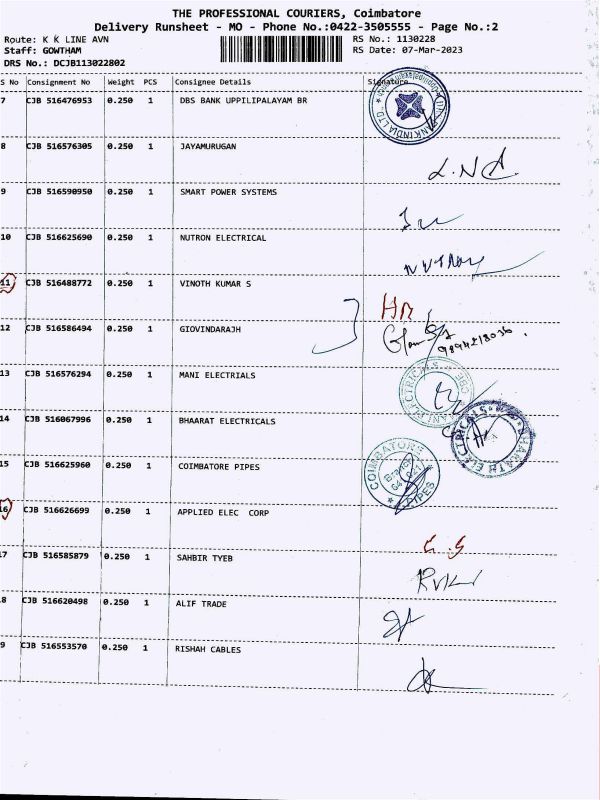 THE PROFESSIONAL COURIERS, Coimbatore
Delivery Runsheet - MO - Phone No.:0422-3505555 - Page No.:2
Route: K K LINE AVN
RS No.: 1130228
Staff: GOWTHAM
RS Date: 07-Mar-2023
DRS No.: DCJB113022802
S No Consignment No Weight PCS Consignee Details Signature
7 CJB 516476953 0.250 1 DBS BANK UPPILIPALAYAM BR
BANK INDIA LTD.
8 CJB 516576305 0.250 1 JAYAMURUGAN
9 CJB 516590950 0.250 1 SMART POWER SYSTEMS
10 CJB 516625690 0.250 1 NUTRON ELECTRICAL
11 CJB 516488772 0.250 1 VINOTH KUMAR S
12 CJB 516586494 0.250 1 GIOVINDARAJH
9894218036
13 CJB 516576294 0.250 1 MANI ELECTRIALS
MANI ELECTRICALS CBE
14 CJB 516067996 0.250 1 BHAARAT ELECTRICALS
BHARATH ELECTRICALS
15 CJB 516625960 0.250 1 COIMBATORE PIPES
COIMBATORE PIPES
16 CJB 516626699 0.250 1 APPLIED ELEC CORP
17 CJB 516585879 0.250 1 SAHBIR TYEB
8 CJB 516620498 0.250 1 ALIF TRADE
9 CJB 516553570 0.250 1 RISHAH CABLES